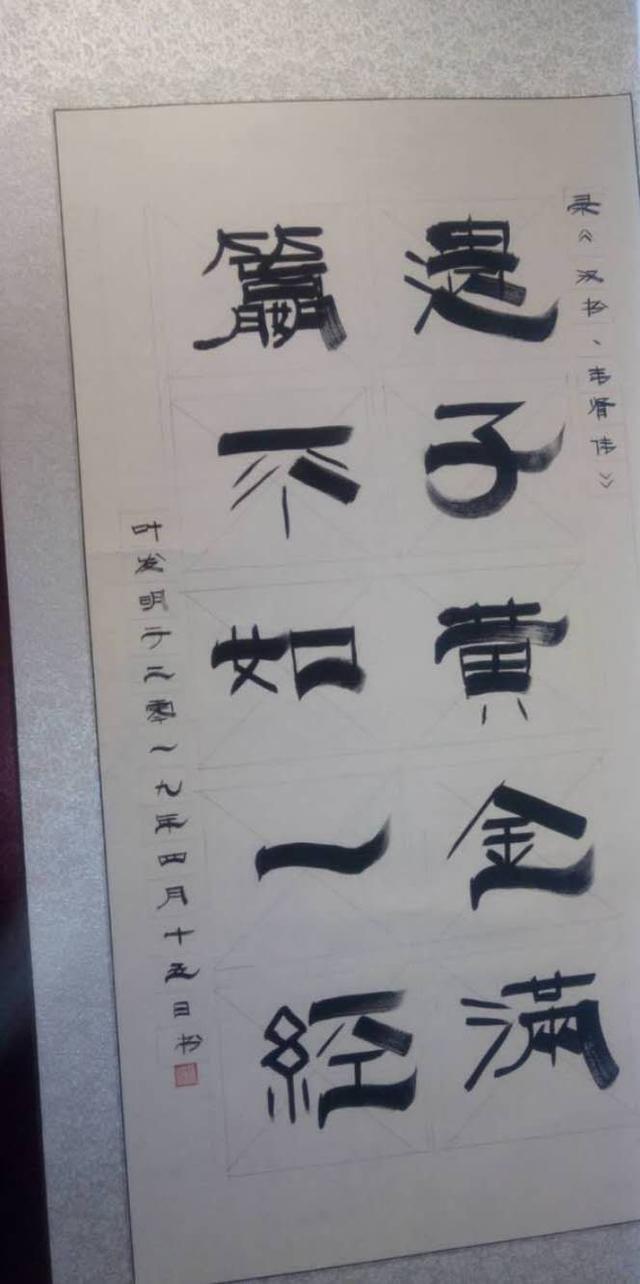 录《汉书、韦贤传》
遺子黄金滿
籯不如一經
叶发明于二零一九年四月十五日书